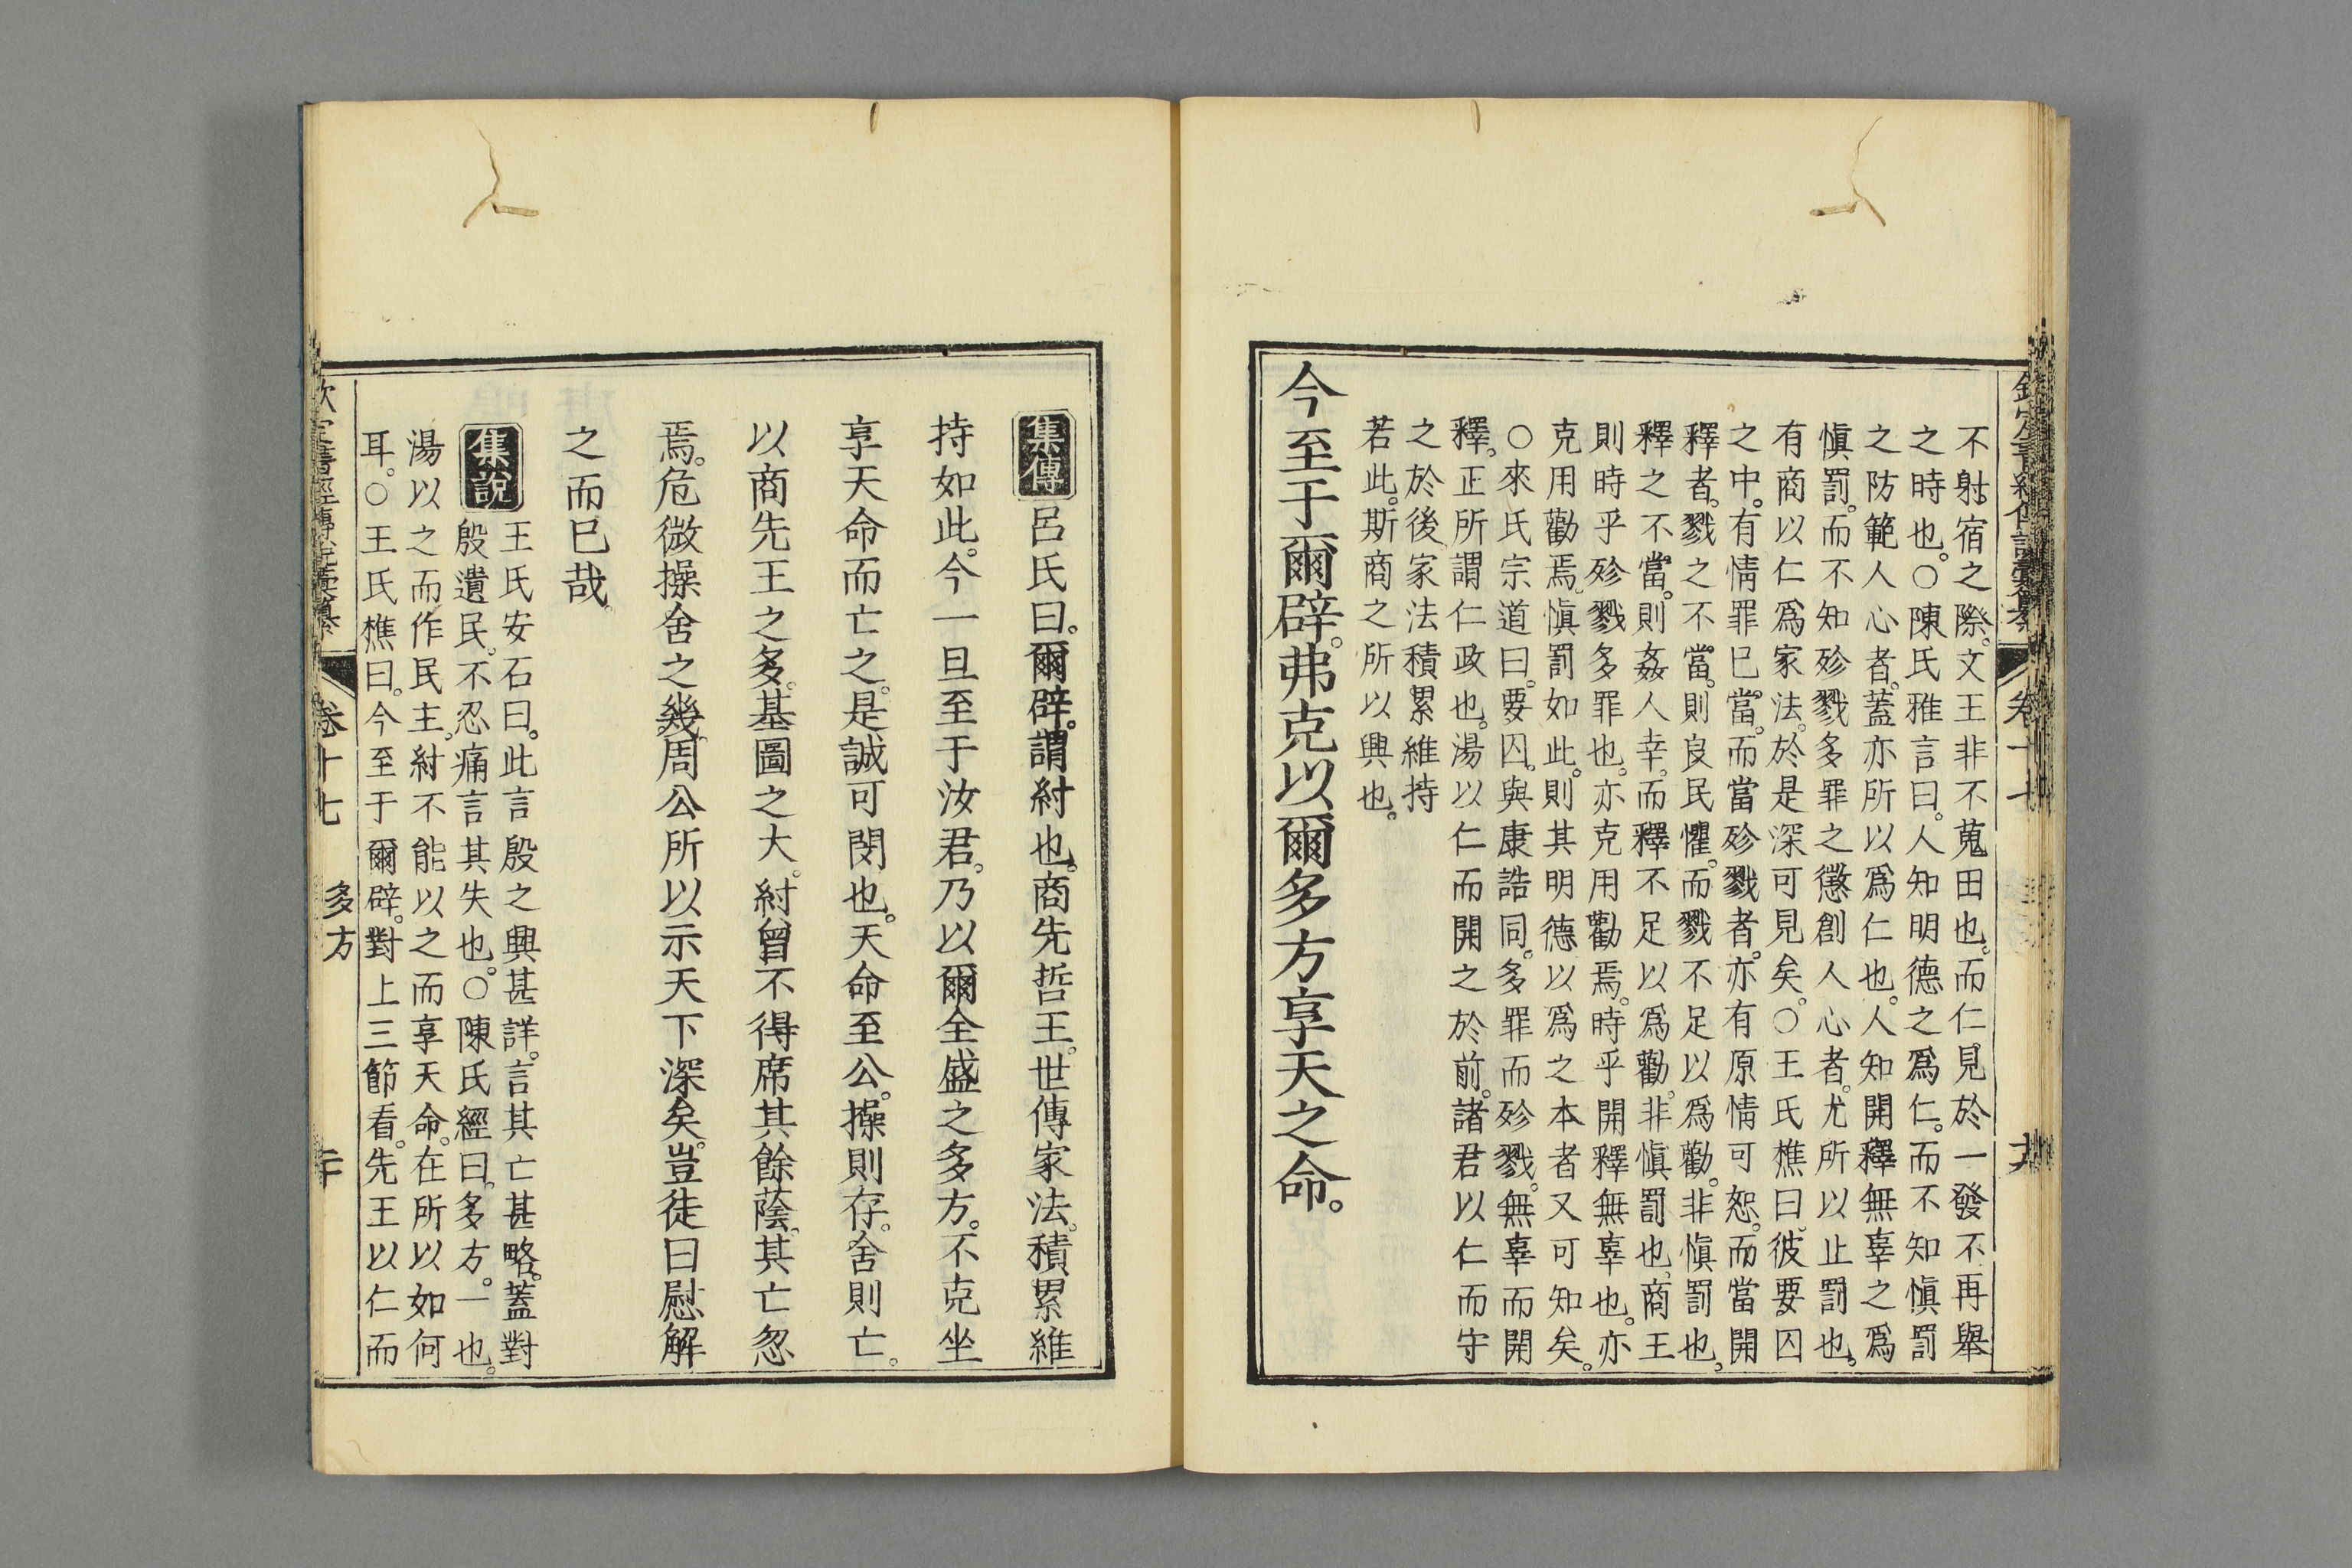 不射宿之際。文王非不蒐田也。而仁見於一發不再舉
之時也。○陳氏雅言曰。人知明德之爲仁。而不知愼罰
之防範人心者。蓋亦所以爲仁也。人知開釋無辜之爲
愼罰。而不知殄戮多罪之懲創人心者。尤所以止罰也。
有商以仁爲家法。於是深可見矣。○王氏樵曰。彼要囚
之中。有情罪巳當。而當殄戮者。亦有原情可恕。而當開
釋者。戮之不當。則良民懼。而戮不足以爲勸。非愼罰也。
釋之不當。則姦人幸。而釋不足以爲勸。非愼罰也。商王
則時乎殄戮多罪也。亦克用勸焉。時乎開釋無辜也。亦
克用勸焉。愼罰如此。則其明德以爲之本者又可知矣。
○來氏宗道曰。要囚。與康誥同。多罪而殄戮。無辜而開
釋。正所謂仁政也。湯以仁而開之於前。諸君以仁而守
之於後。家法積累維持
若此。斯商之所以興也。
今至于爾辟。弗克以爾多方享天之命。
集傳 呂氏曰。爾辟。謂紂也。商先哲王。世傳家法。積累維
持如此。今一旦至于汝君。乃以爾全盛之多方。不克坐
享天命而亡之。是誠可閔也。天命至公。操則存。舍則亡。
以商先王之多。基圖之大。紂曾不得席其餘蔭。其亡忽
焉。危微操舍之幾。周公所以示天下深矣。豈徒曰慰解
之而巳哉。
集說 王氏安石曰。此言殷之興甚詳。言其亡甚略。蓋對
殷遺民。不忍痛言其失也。○陳氏經曰。多方。一也。
湯以之而作民主。紂不能以之而享天命。在所以如何
耳。○王氏樵曰。今至于爾辟。對上三節看。先王以仁而
卷十七 多方